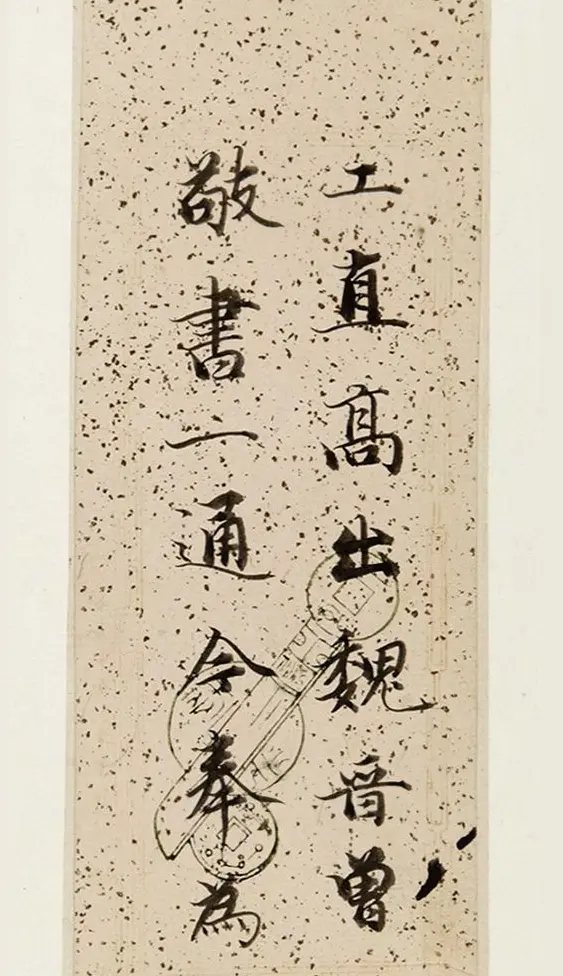 工直高出魏晉曾
敬書一通今奉為